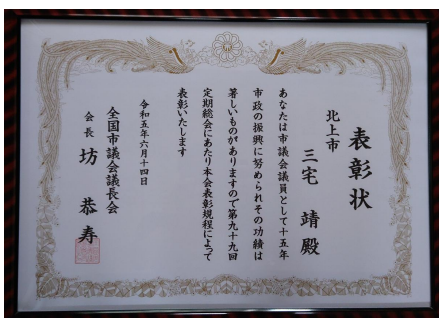 表彰状
北上市
三宅 靖 殿
あなたは市議会議員として十五年
市政の振興に努められその功績は
著しいものがありますので第九十九回
定期総会にあたり本会表彰規程によって
表彰いたします
令和五年六月十四日
全国市議会議長会
会長 坊 恭寿